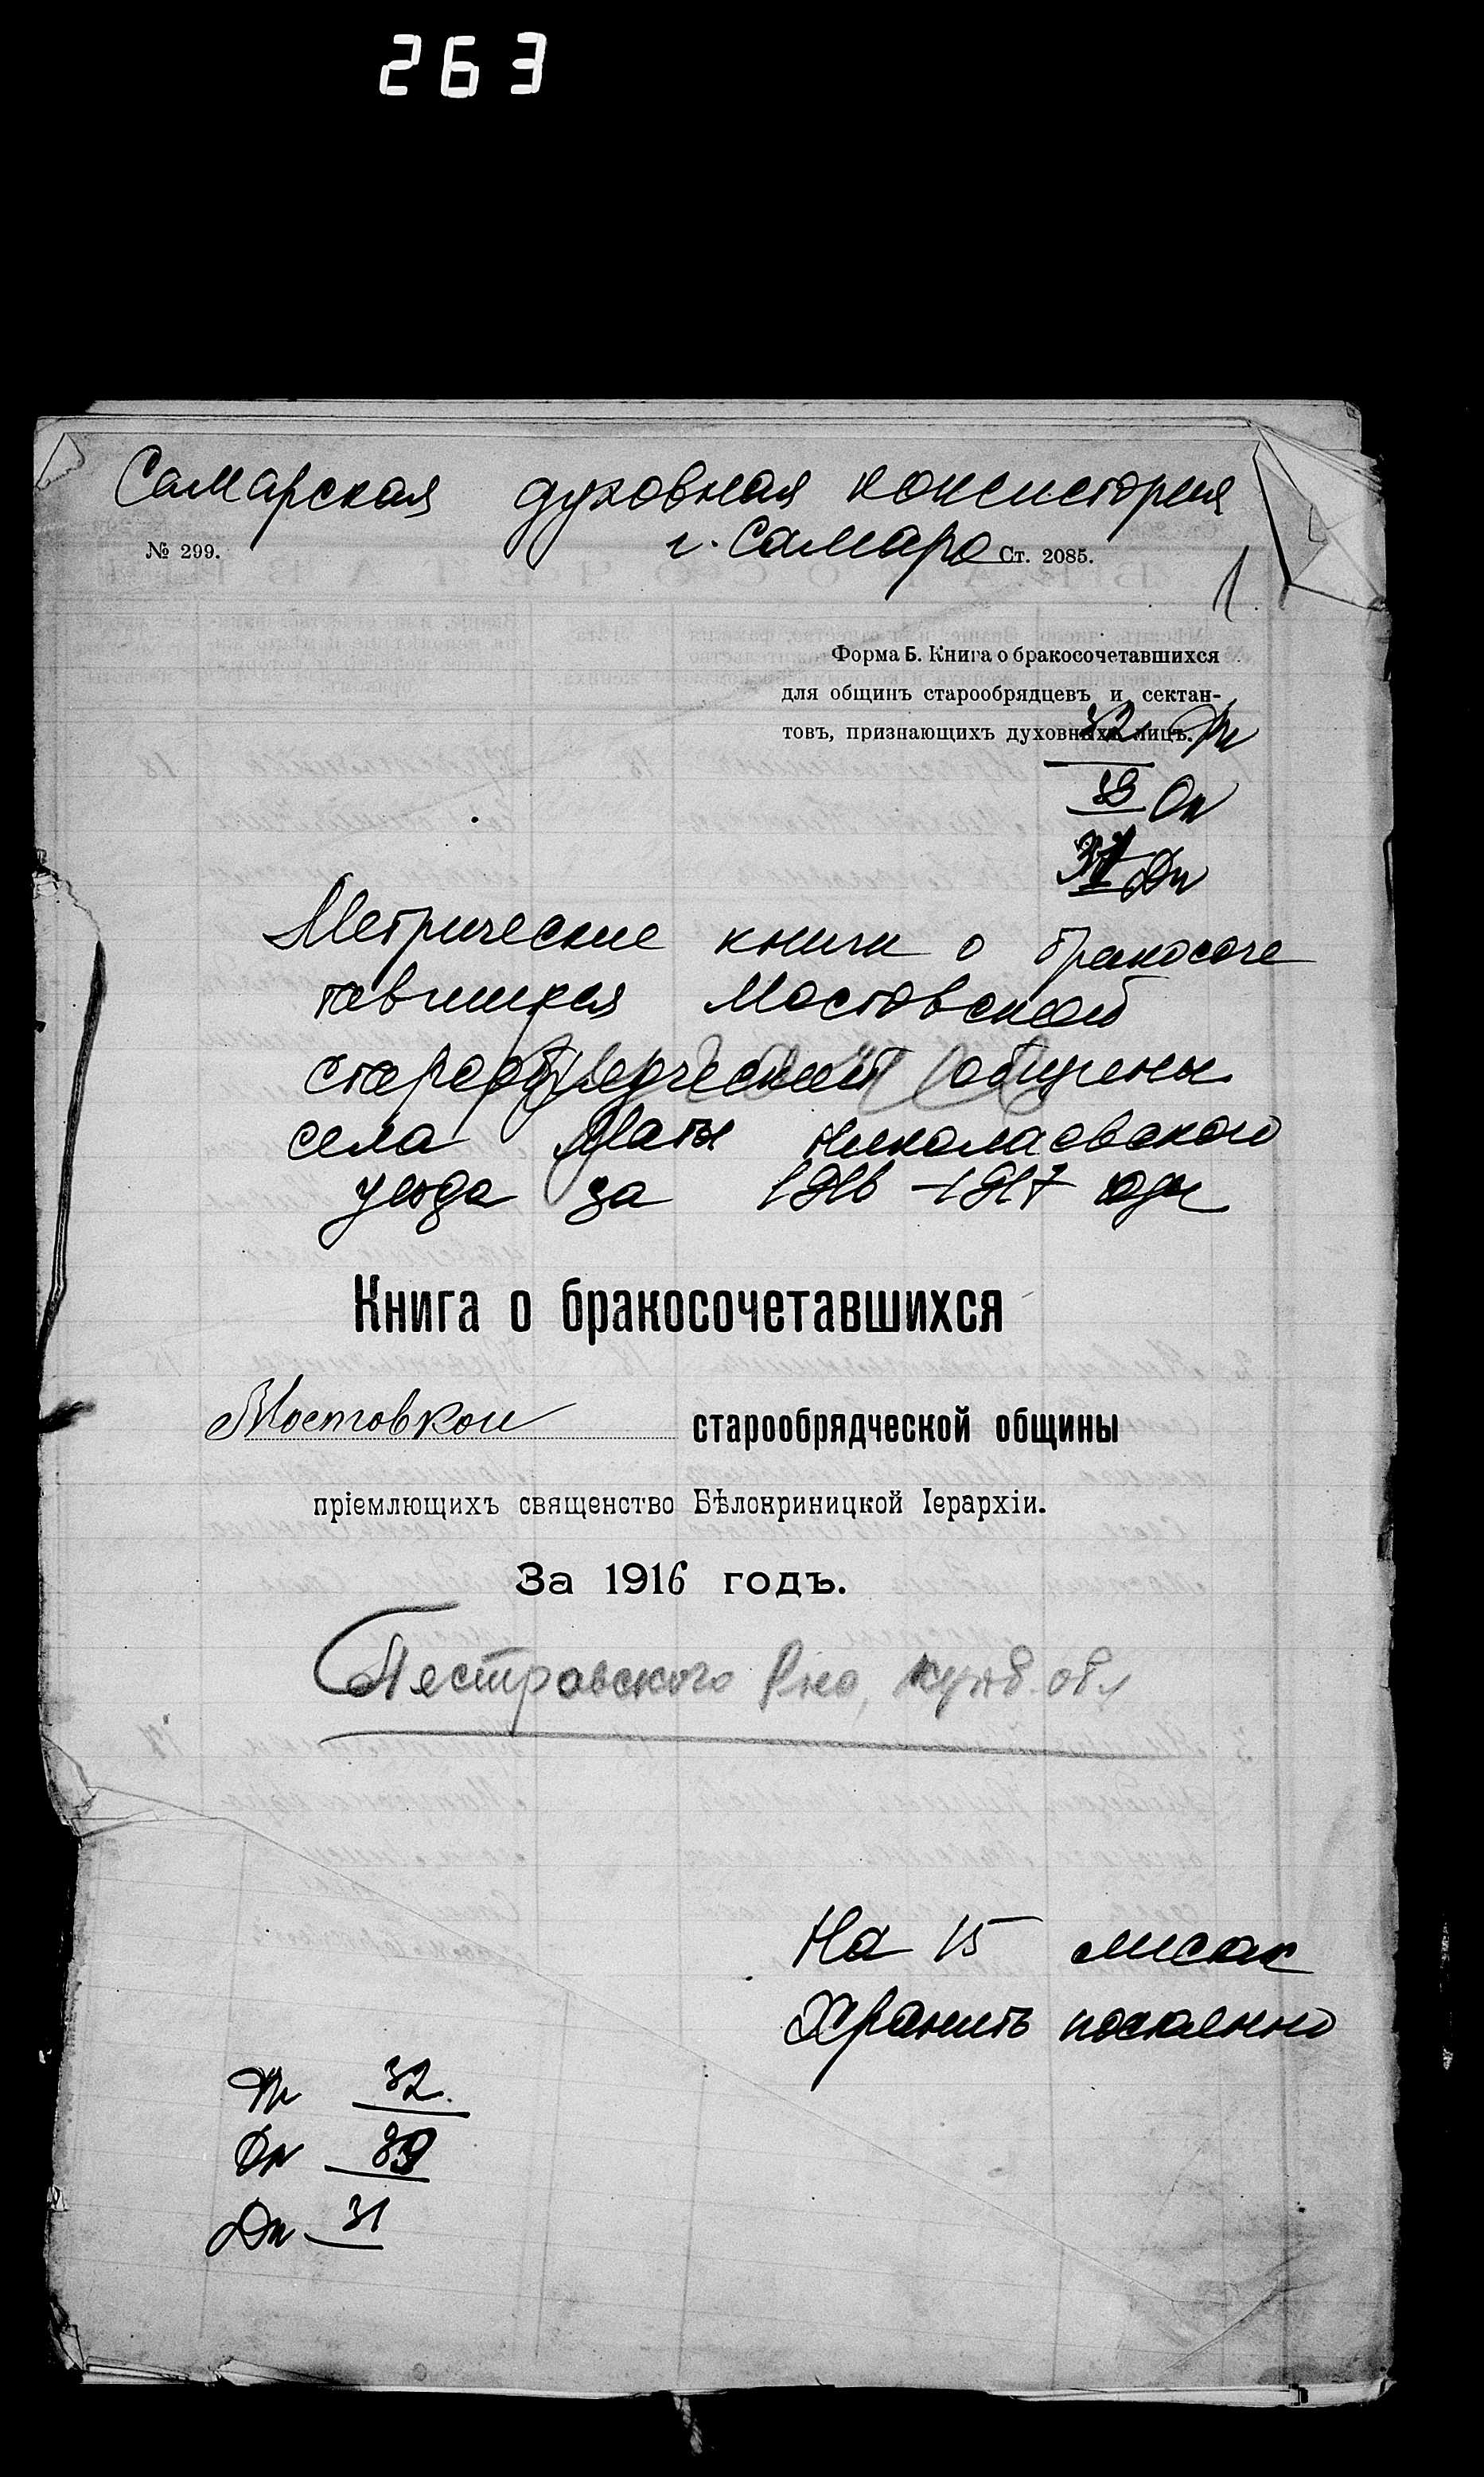 263
Самарская духовная консистория
г. Самара
№ 299.
Ст. 2085.
1
Форма Б. Книга о бракосочетавшихся
для общинъ старообрядцевъ и сектан-
товъ, признающихъ духовныхъ лицъ.
32
Оп
Метрические книги о бракосоче
тавшихся Мостовской
старообрядческой общины
села Николаевского
уезда за 1916-1917 годы
Книга о бракосочетавшихся
Мостовкой старообрядческой общины
пріемлющихъ священство Бѣлокриницкой Іерархіи.
За 1916 годъ.
Пестравского Рно, куйб. обл
На 15 листах
Хранить постоянно
32.
Оп 39
31